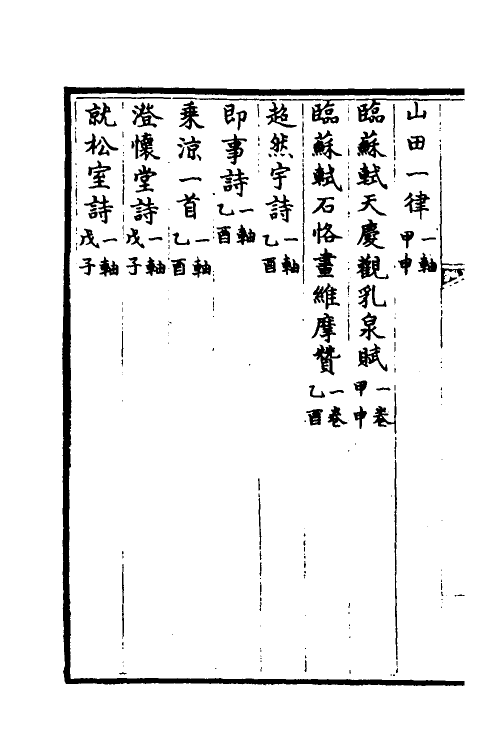 山田一律一軸甲申
臨蘇軾天慶觀乳泉賦一卷甲申
臨蘇軾石恪畫維摩贊一卷乙酉
超然宇詩一軸乙酉
即事詩一軸乙酉
乗涼一首一軸乙酉
澄懷堂詩一軸戊子
就松室詩一軸戊子